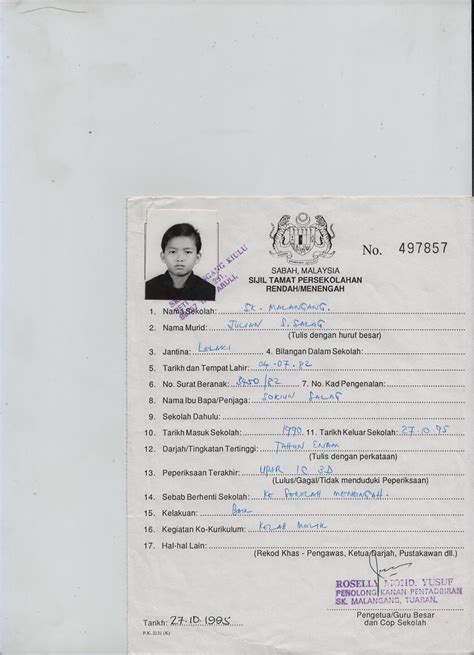 No. 497857
SABAH, MALAYSIA
SIJIL TAMAT PERSEKOLAHAN
RENDAH/MENENGAH
1. Nama Sekolah: SK. MALANGANG.
2. Nama Murid: JULIAN S. SALAG
(Tulis dengan huruf besar)
3. Jantina: LELAKI 4. Bilangan Dalam Sekolah:
5. Tarikh dan Tempat Lahir: 04-07-82
6. No. Surat Beranak: 3450/82 7. No. Kad Pengenalan:
8. Nama Ibu Bapa/Penjaga: SOKIUN SALAG
9. Sekolah Dahulu:
10. Tarikh Masuk Sekolah: 1990 11. Tarikh Keluar Sekolah: 27.10.95
12. Darjah/Tingkatan Tertinggi: TAHUN ENAM
(Tulis dengan perkataan)
13. Peperiksaan Terakhir: UPSR 1C 3D
(Lulus/Gagal/Tidak menduduki Peperiksaan)
14. Sebab Berhenti Sekolah: KE SEKOLAH MENENGAH.
15. Kelakuan: BAIK
16. Kegiatan Ko-Kurikulum: KELAB MUZIK
17. Hal-hal Lain:
(Rekod Khas - Pengawas, Ketua Darjah, Pustakawan dll.)
ROSELLY MOHD. YUSUF
PENOLONG KANAN PENTADBIRAN
SK. MALANGANG, TUARAN.
Pengetua/Guru Besar
dan Cop Sekolah
Tarikh: 27.10.1995